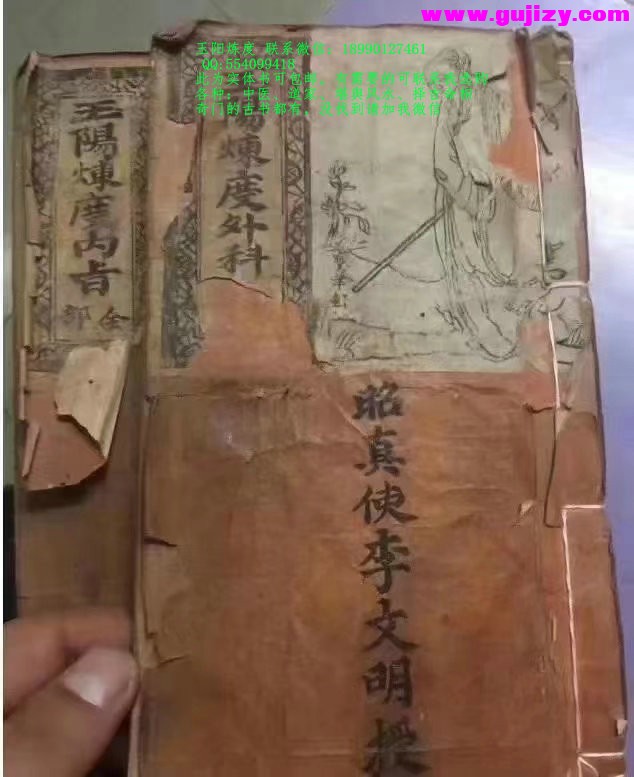 www.gujizy.com
王阳炼度 联系微信：18990127461
QQ:554099418
此为实体书可包邮，有需要的可联系
各种：中医、道家、堪舆风水、择吉
奇门的古书都有，没找到请加我微信
昭真使李文明授
陽煉度外科
王陽煉度内旨
全部